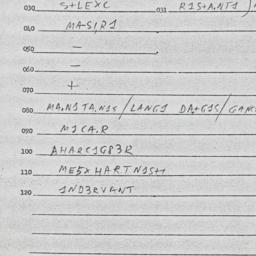 030 S+LEXC 031 R1S+A.NT1
040 MASIR1
050 —
060 —
070 +
080 MA.N1TA.N1S/LANG1 DA+G1S/GANG
090 M1CA.R
100 AHARC1G83R
110 ME5XHARTN1S++
120 1ND3RVANT